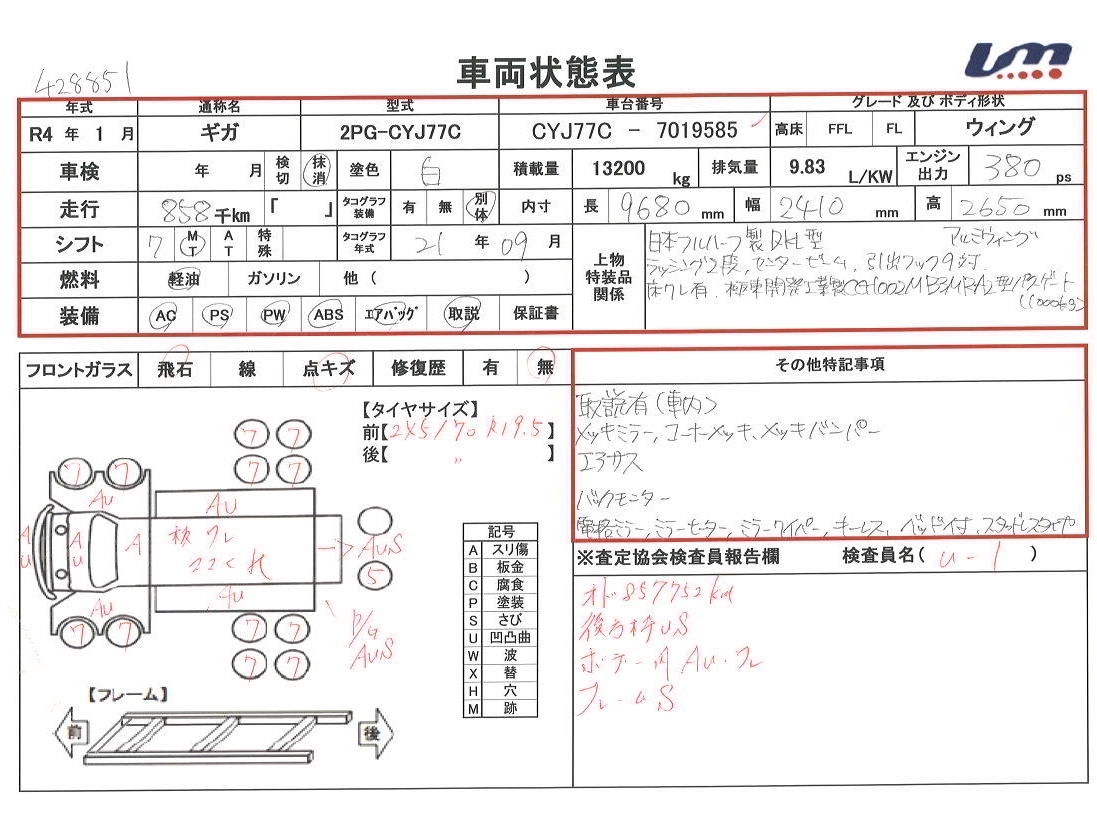 428851
車両状態表
UM
年式 通称名 型式 車台番号 グレード 及び ボディ形状
R4 年 1 月 ギガ 2PG-CYJ77C CYJ77C - 7019585 高床 FFL FL ウィング
車検 年 月 検切 抹消 塗色 白 積載量 13200 kg 排気量 9.83 L/KW エンジン出力 380 ps
走行 858 千km 「 」 タコグラフ装備 有 無 別体 内寸 長 9680 mm 幅 2410 mm 高 2650 mm
シフト 7 MT AT 特殊 タコグラフ年式 21 年 09 月
燃料 軽油 ガソリン 他 ( )
装備 AC PS PW ABS エアバッグ 取説 保証書
上物特装品関係
日本フルハーフ製 アルミウィング
ラッシング2段, センタービーム, 引出フック9対.
床ワレ有. 極東開発工業製 型パワーゲート
フロントガラス 飛石 線 点キズ 修復歴 有 無
その他特記事項
取説有(車内)
メッキミラー, コーナーメッキ, メッキバンパー
エアサス
バックモニター
電格ミラー, ミラーヒーター, ミラーワイパー, キーレス, ベッド付, スタッドレスタイヤ
【タイヤサイズ】
前【245/70 R19.5】
後【 〃 】
7 7
7 7
7 7
Au
Au
A
u
A
u
A
板 ワレ
ササクれ
→ AUS
5
Au
Au
7 7
7 7
7 7
P/G
AUS
記号
A スリ傷
B 板金
C 腐食
P 塗装
S さび
U 凹凸曲
W 波
X 替
H 穴
M 跡
【フレーム】
前 後
※査定協会検査員報告欄 検査員名( U-1 )
オド857752km
後方枠US
ボデー内 Au・ワレ
フレームS